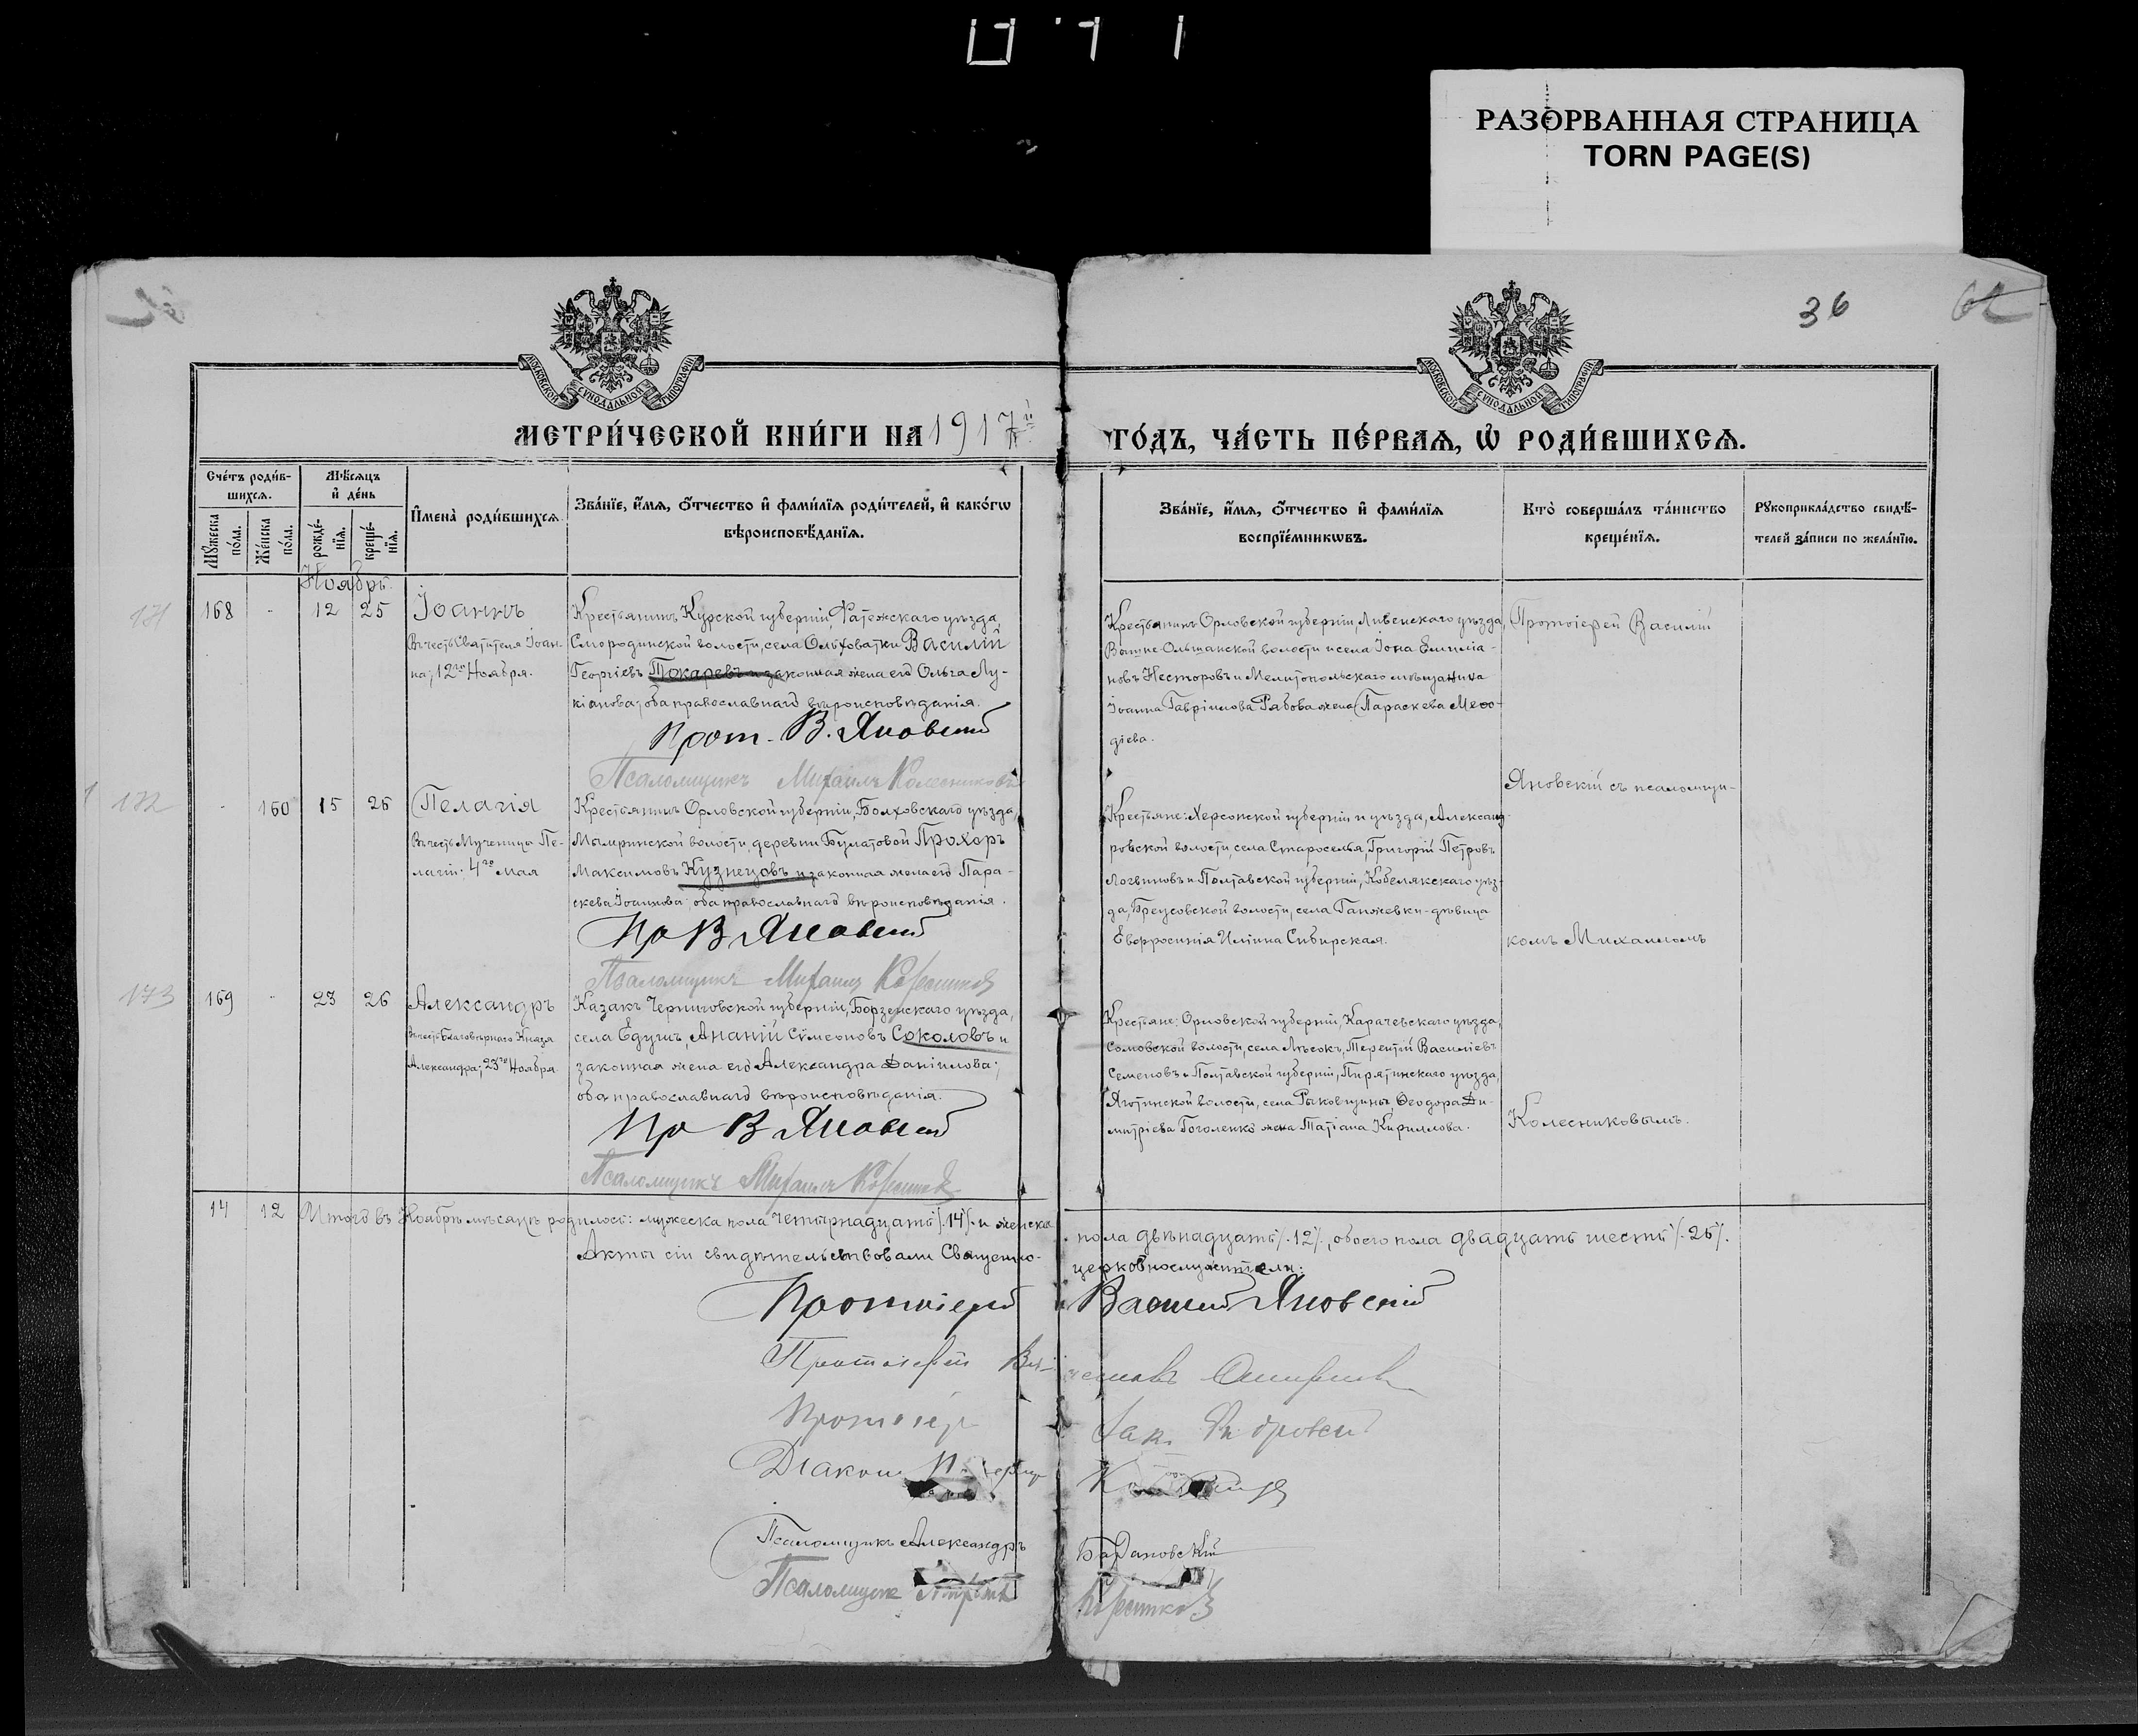 РАЗОРВАННАЯ СТРАНИЦА
TORN PAGE(S)
36
МОСКОВСКОЙ СѴНОДАЛЬНОЙ ТИПОГРАФІИ
МОСКОВСКОЙ СѴНОДАЛЬНОЙ ТИПОГРАФІИ
МЕТРИ́ЧЕСКОЙ КНИ́ГИ НА 1917й ГО́ДЪ, ЧА́СТЬ ПЕ́РВАѦ, Ѡ҆ РОДИ́ВШИХСѦ.
Сче́тъ роди́в-
шихся.
Мꙋжеска по́ла.
Же́нска по́ла.
Мѣ́сяцъ
и҆ де́нь
рожде́-
нїя.
креще́-
нїя.
И҆мена̀ роди́вшихся
Зва́нїе, и҆́мя, о҆́тчество и҆ фами́лїя роди́телей, и҆ како́гѡ
вѣроисповѣ́данїя.
Зва́нїе, и҆́мя, о҆́тчество и҆ фами́лїя
воспрїе́мникѡвъ.
Кто̀ соверша́лъ та́инство
креще́нїя.
Рꙋкоприкла́дство свидѣ́-
телей за́писи по жела́нїю.
Ноябрь.
171
168 - 12 25 Іоаннъ
Въ честь Святителя Іоан-
на; 12го Ноября.
Крестьянинъ Курской губерніи, Фатежскаго уѣзда,
Смородинской волости, села Ольховатки Василій
Георгіевъ Токаревъ и законная жена его Ольга Лу-
кіанова; оба православнаго вѣроисповѣданія.
Прот. В. Яновскій
Псаломщикъ Михаилъ Колесниковъ
Крестьянинъ Орловской губерніи, Ливенскаго уѣзда,
Вышне-Ольшанской волости и села Іона Емиліа-
новъ Несторовъ и Мелитопольскаго мѣщанина
Іоанна Гавріилова Рябова жена Параскева Меѳо-
діева.
Протоіерей Василій
Яновскій съ псаломщи-
172
- 160 15 26 Пелагія
Въ честь Мученица Пе-
лагіи; 4го Мая
Крестьянинъ Орловской губерніи, Болховскаго уѣзда,
Мымринской волости, деревни Булатовой Прохоръ
Максимовъ Кузнецовъ и законная жена его Пара-
скева Іоаннова; оба православнаго вѣроисповѣданія.
Пр В Яновскій
Псаломщикъ Михаилъ Колесниковъ
Крестьяне: Херсонской губерніи и уѣзда, Александ-
ровской волости, села Староселья, Григорій Петровъ
Логвиновъ и Полтавской губерніи, Кобелякскаго уѣз-
да, Бреусовской волости, села Ганжевки-дѣвица
Евфросинія Иліина Сибирская.
комъ Михаиломъ
173
169 - 23 26 Александръ
Въ честь Благовѣрнаго Князя
Александра; 23го Ноября.
Казакъ Черниговской губерніи, Борзенскаго уѣзда,
села Едучи, Ананій Сімеоновъ Соколовъ и
законная жена его Александра Даніилова;
оба православнаго вѣроисповѣданія.
Пр В Яновскій
Псаломщикъ Михаилъ Колесниковъ
Крестьяне: Орловской губерніи, Карачевскаго уѣзда,
Сомовской волости, села Лѣсокъ, Терентій Василіевъ
Семеновъ и Полтавской губерніи, Пирятинскаго уѣзда,
Яготинской волости, села Рыковщины, Ѳеодора Ди-
митріева Гоголенко жена Татіана Кириллова.
Колесниковымъ.
14 12 Итого въ Ноябрѣ мѣсяцѣ родилось: мужеска пола четырнадцать /.14/. и женска пола двѣнадцать /.12/., обоего пола двадцать шесть /.26/.
Акты сіи свидѣтельствовали Священно-церковнослужители:
Протоіерей Василій Яновскій
Протоіерей
Протоіер
Діаконъ
Псаломщикъ Александръ Бардановскій
Псаломщикъ Михаилъ Колесниковъ